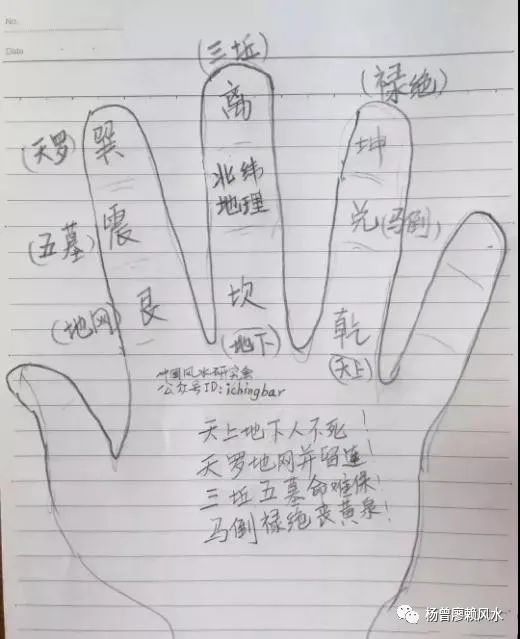 No.
Date
(三坵)
(禄绝)
离
(天罗) 巽
坤
北纬
地理
(五墓) 震
兑 (马倒)
(地网) 艮
坎
乾
(地下)
(天上)
中国风水研究会
公众号ID:ichingbar
天上地下人不死!
天罗地网并留连!
三坵五墓命难保!
马倒禄绝丧黄泉!
杨曾廖赖风水